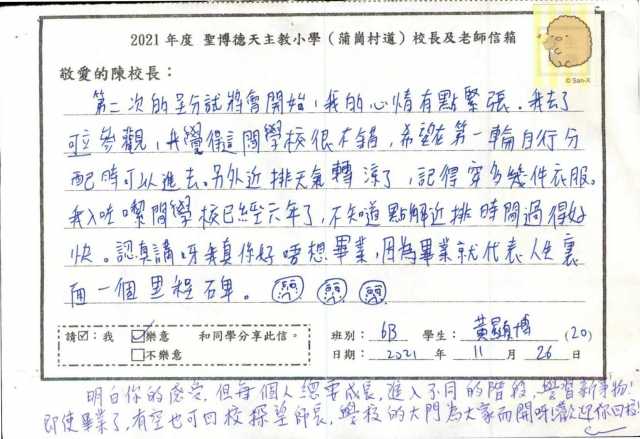 2021 年度 聖博德天主教小學（蒲崗村道）校長及老師信箱
© San-X
敬愛的陳校長：
第二次的呈分試將會開始，我的心情有點緊張。我去了
可立參觀，我覺得這間學校很不錯，希望在第一輪自行分
配時可以進去。另外近排天氣轉涼了，記得穿多幾件衣服。
我入咗嚟間學校已經六年了，不知道點解近排時間過得好
快。認真講呀我真係好唔想畢業，因為畢業就代表人生裏
面一個里程碑。
請☑：我 ☑樂意 和同學分享此信。
□不樂意
班別： 6B 學生： 黃顯博 (20)
日期： 2021 年 11 月 26 日
明白你的感受，但每個人總要成長，進入不同的階段，學習新事物！
即使畢業了，有空也可回校探望師長，學校的大門為大家而開呀！歡迎你回校！